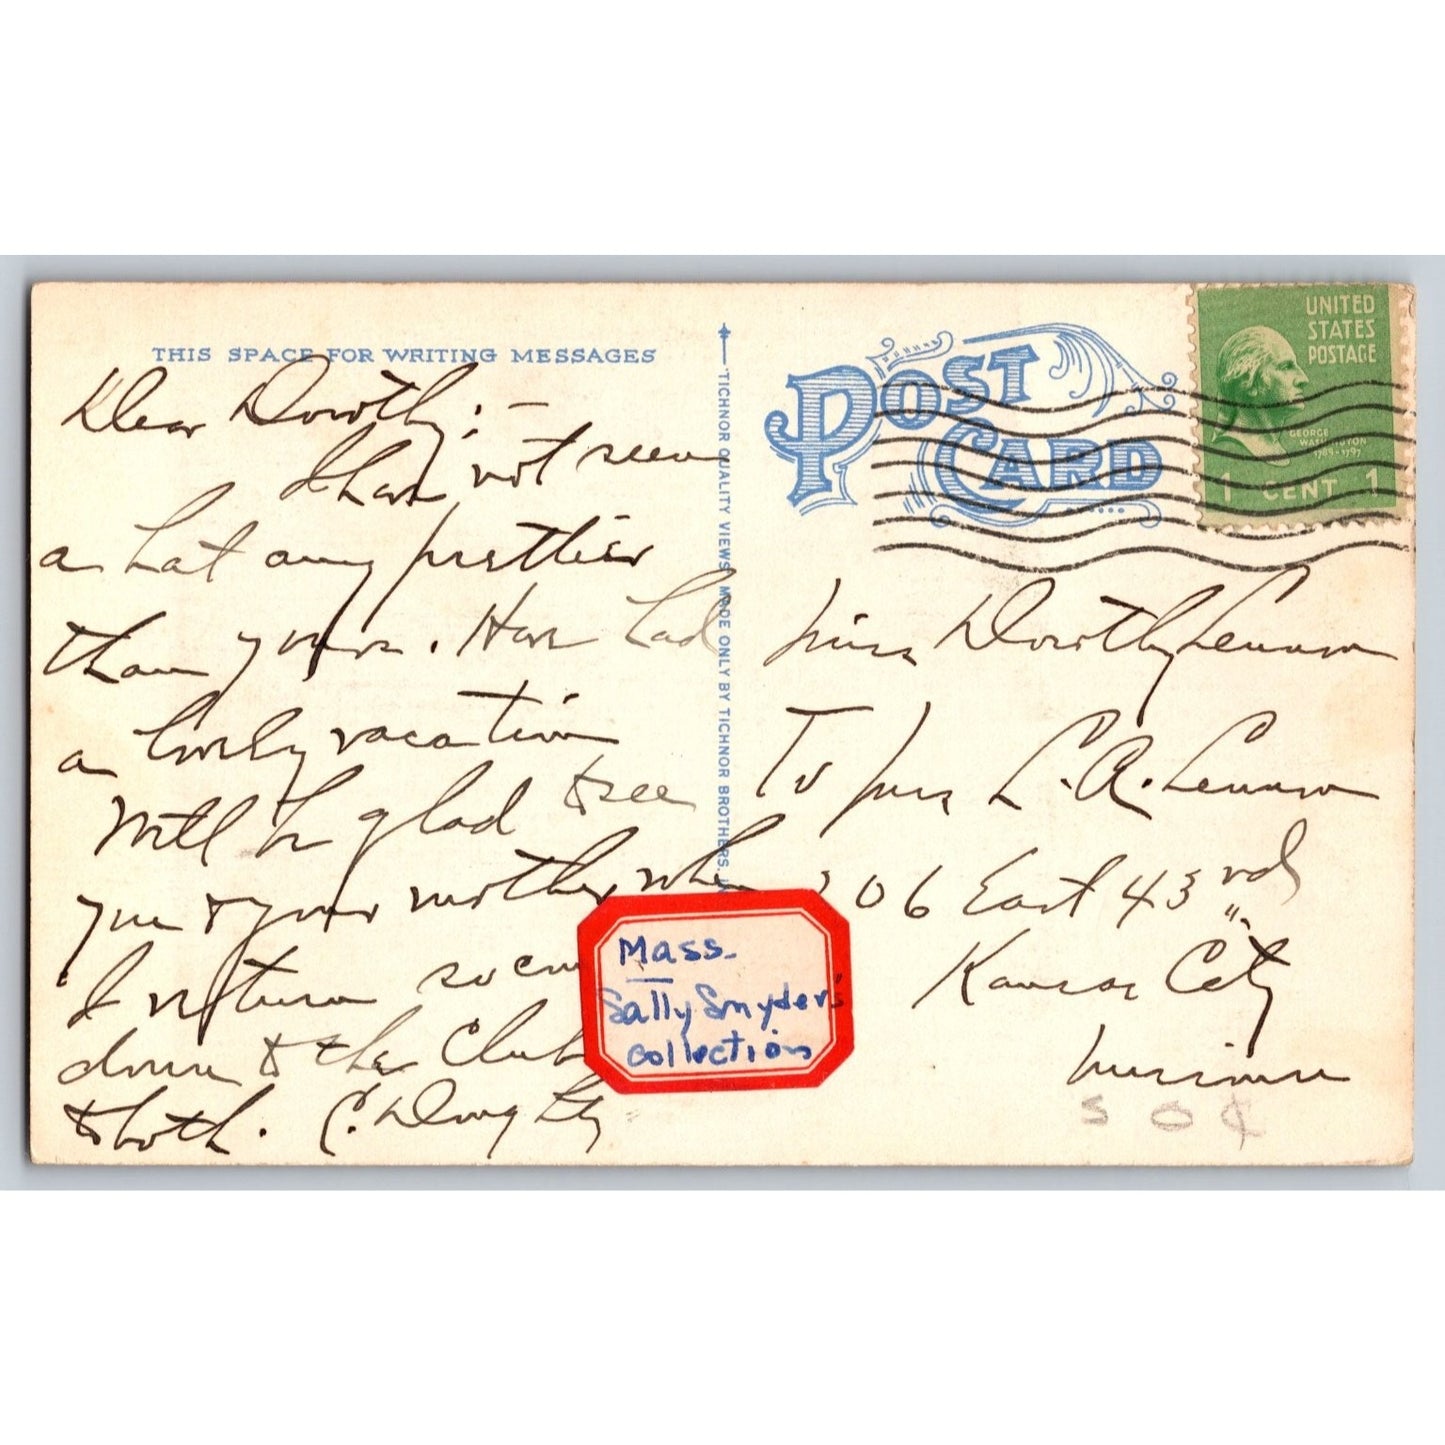 THIS SPACE FOR WRITING MESSAGES
Dear Dorothy; –
I have not seen
a hat any prettier
than yours. Have had
a lovely vacation
Will be glad to see
you & your mother when
I return
down to the Club
C. Doughty
TICHNOR QUALITY VIEWS MADE ONLY BY TICHNOR BROTHERS,
POST CARD
UNITED
STATES
POSTAGE
GEORGE
WASHINGTON
1789-1797
1 CENT 1
Miss Dorothy Lennon
To Mrs L. A. Lennon
206 East 43rd
Kansas City
Missouri
50¢
Mass.
Sally Snyder's
collection